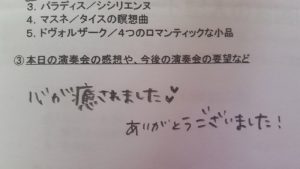 3. パラディス／シシリエンヌ
4. マスネ／タイスの瞑想曲
5. ドヴォルザーク／4つのロマンティックな小品
③本日の演奏会の感想や、今後の演奏会の要望など
心が癒されました♥
ありがとうございました！